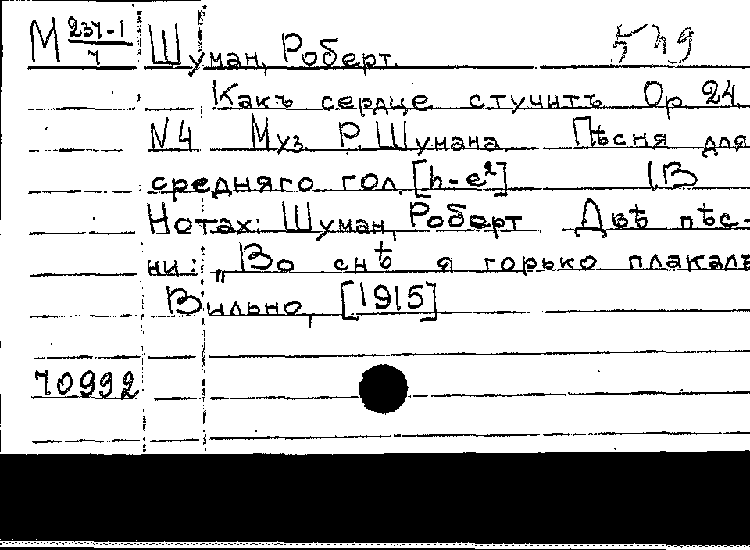 М 237-1/7 Шуман, Роберт. 549
Какъ сердце стучитъ Ор 24
N4 Муз Р. Шумана Пѣсня для
средняго гол [h-e²] (В
Нотах: Шуман, Роберт Двѣ пѣс-
ни: „Во снѣ я горько плакалъ
Вильно, [1915]
70992